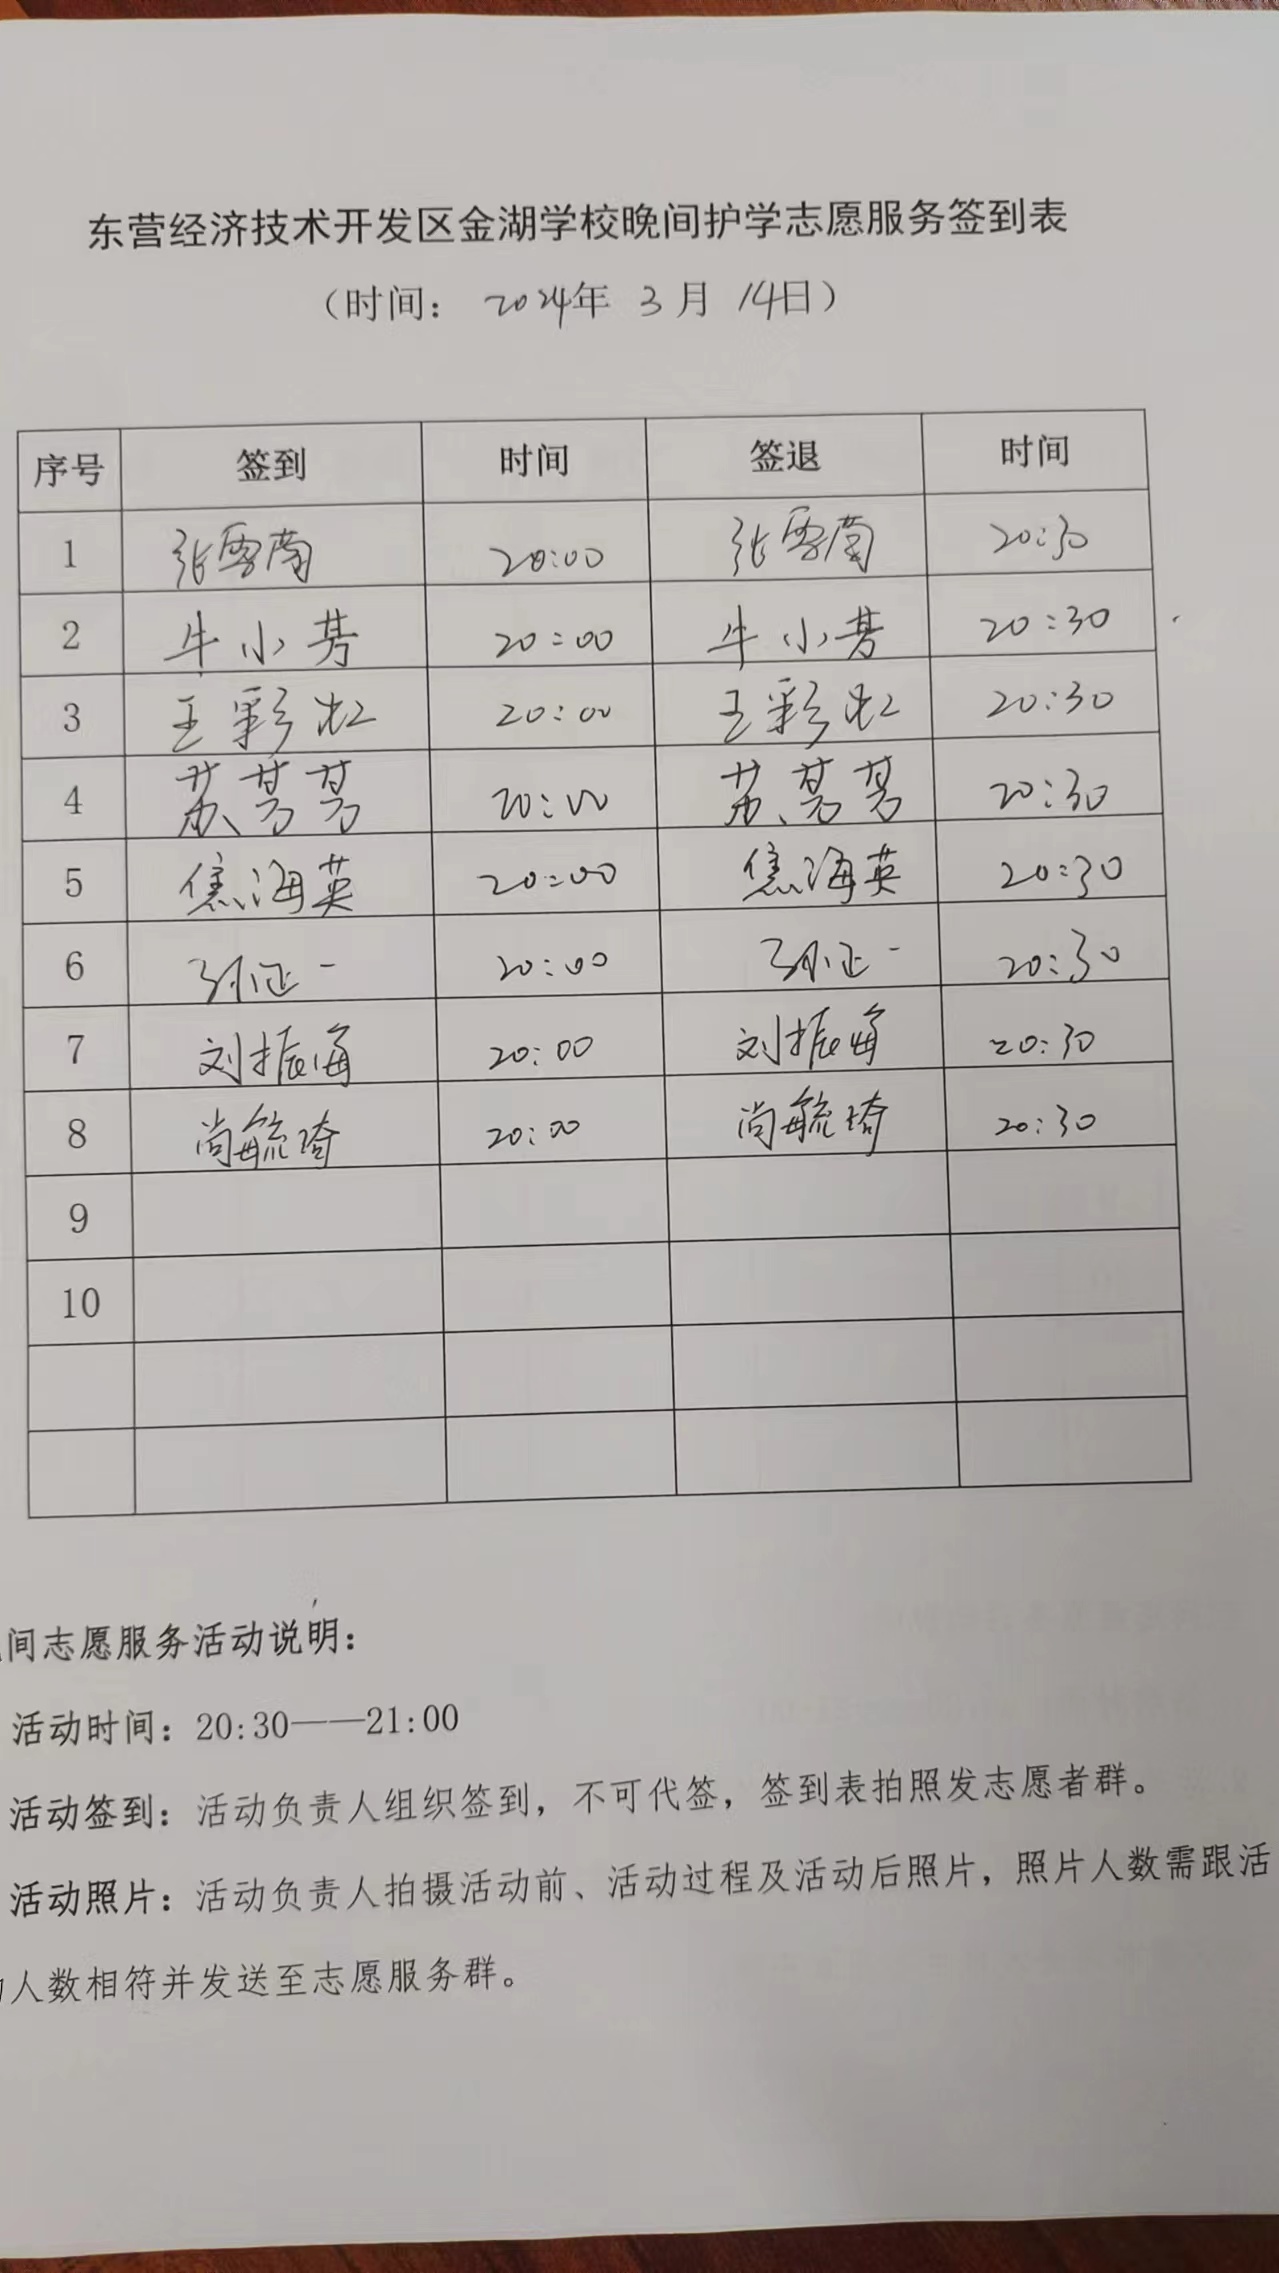 东营经济技术开发区金湖学校晚间护学志愿服务签到表
（时间： 2024年 3月 14日）
序号 签到 时间 签退 时间
1 张雪菌 20:00 张雪菌 20:30
2 牛小芳 20:00 牛小芳 20:30
3 王彩虹 20:00 王彩虹 20:30
4 苏芳芳 20:00 苏芳芳 20:30
5 焦海英 20:00 焦海英 20:30
6 孙正一 20:00 孙正一 20:30
7 刘振海 20:00 刘振海 20:30
8 尚毓琦 20:00 尚毓琦 20:30
9
10
间志愿服务活动说明：
活动时间：20:30——21:00
活动签到：活动负责人组织签到，不可代签，签到表拍照发志愿者群。
活动照片：活动负责人拍摄活动前、活动过程及活动后照片，照片人数需跟活
人数相符并发送至志愿服务群。